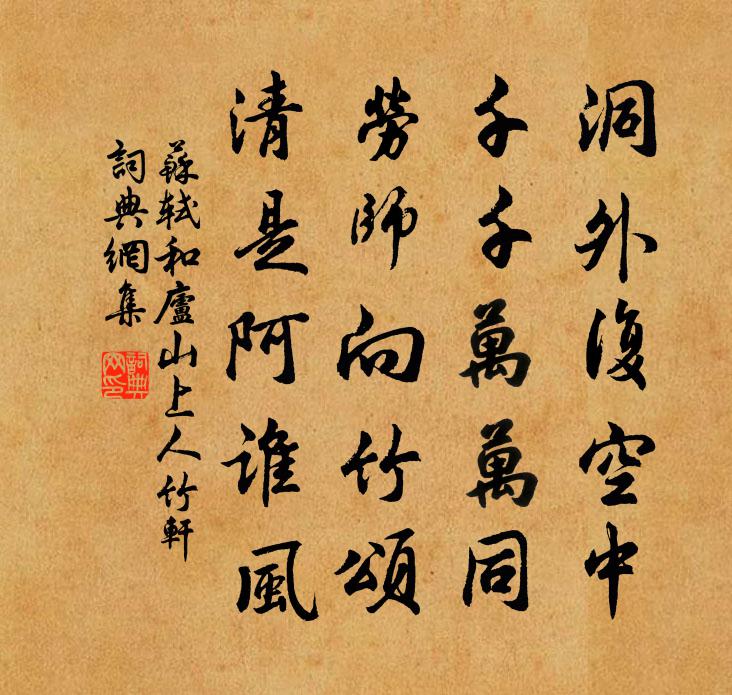 洞外復空中
千千萬萬同
勞師向竹頌
清是阿誰風
蘇軾和廬山上人竹軒
詞典網集
詞典
网印